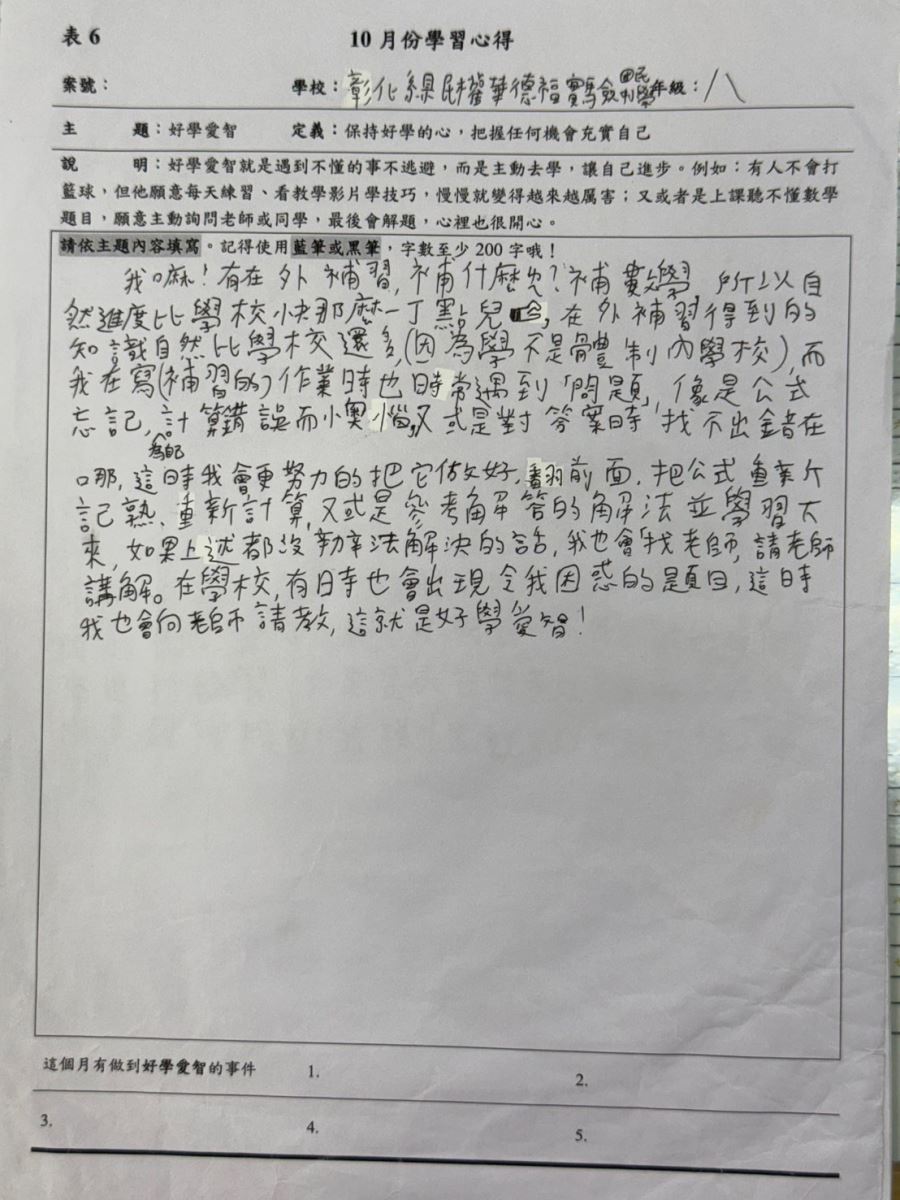 表 6
10 月份學習心得
案號：
學校：彰化縣民權華德福實驗國民小學 年級：八
主 題：好學愛智 定義：保持好學的心，把握任何機會充實自己
說 明：好學愛智就是遇到不懂的事不逃避，而是主動去學，讓自己進步。例如：有人不會打
籃球，但他願意每天練習、看教學影片學技巧，慢慢就變得越來越厲害；又或者是上課聽不懂數學
題目，願意主動詢問老師或同學，最後會解題，心裡也很開心。
請依主題內容填寫。記得使用藍筆或黑筆，字數至少 200 字哦！
我嘛！有在外補習，補什麼呢？補數學 所以自
然進度比學校快那麼一丁點兒，在外補習得到的
知識自然比學校還多，(因為學不是體制內學校)，而
我在寫(補習的)作業時也時常遇到「問題」，像是公式
忘記，計算錯誤而小懊惱，又或是對答案時 找不出錯在
哪，這時我會更努力的把它做好，翻前面，把公式重新
為自己
記熟、重新計算，又或是參考解答的解法並學習下
來，如果上述都沒辦法解決的話，我也會找老師，請老師
講解。在學校，有時也會出現令我困惑的題目，這時
我也會向老師請教，這就是好學愛智！
這個月有做到好學愛智的事件 1. 2.
3. 4. 5.